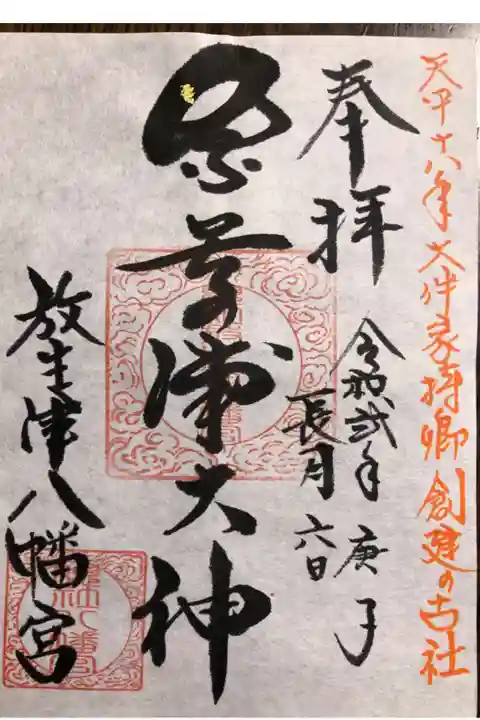 天平十八年 大伴家持卿 創建の古社
奉拝
令和弐年 庚子
長月六日
奈呉浦大神
放生津八幡宮